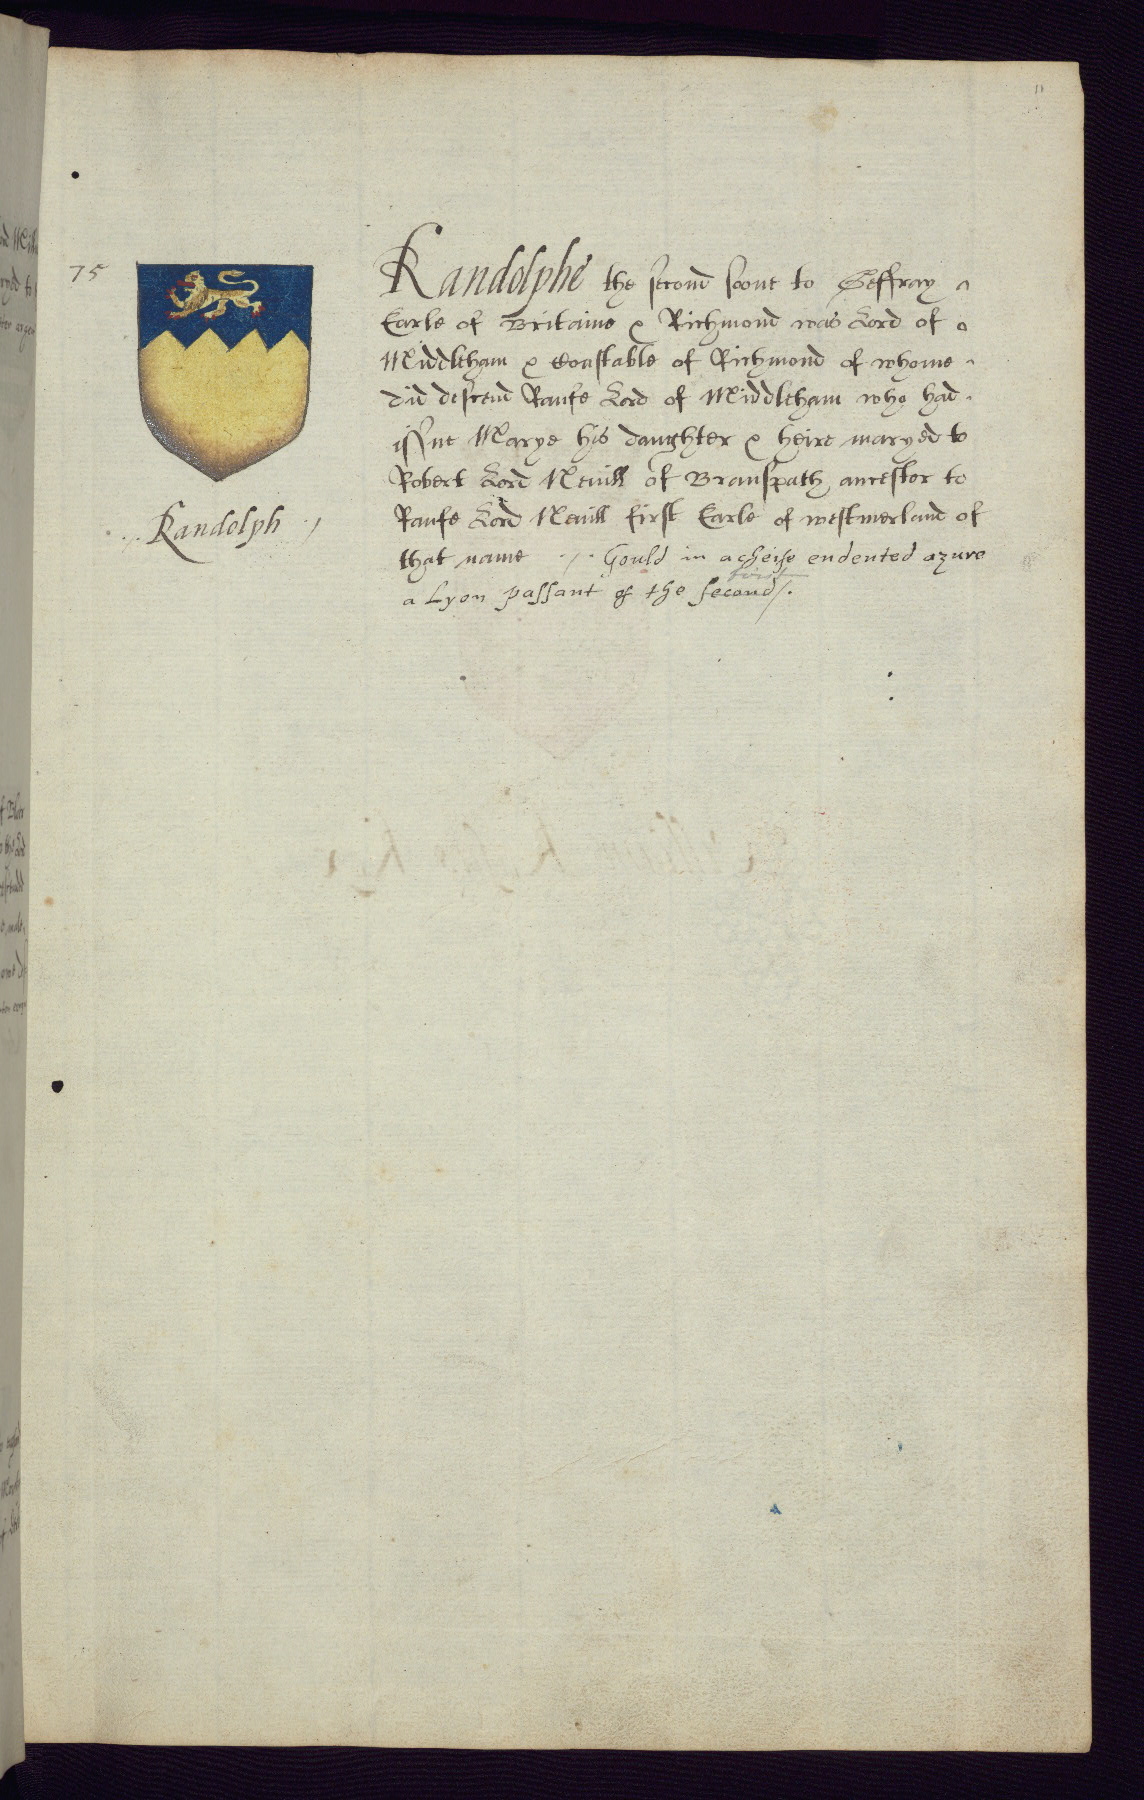 11
75
Randolphe the second soone to Geffray
Earle of Britaine & Richmond was Lord of
Middleham & Constable of Richmond of whome
did descend Raufe Lord of Middleham who had
issue Marye his daughter & heire maryed to
Robert Lord Nevill of Branspath ancestor to
Raufe Lord Nevill first Earle of westmerland of
that name ./. Gould in a cheife endented azure
first
a Lyon passant of the second/.
./. Randolph ./